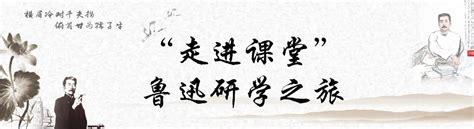 横眉冷对千夫指
俯首甘为孺子牛
“走进课堂”
鲁迅研学之旅